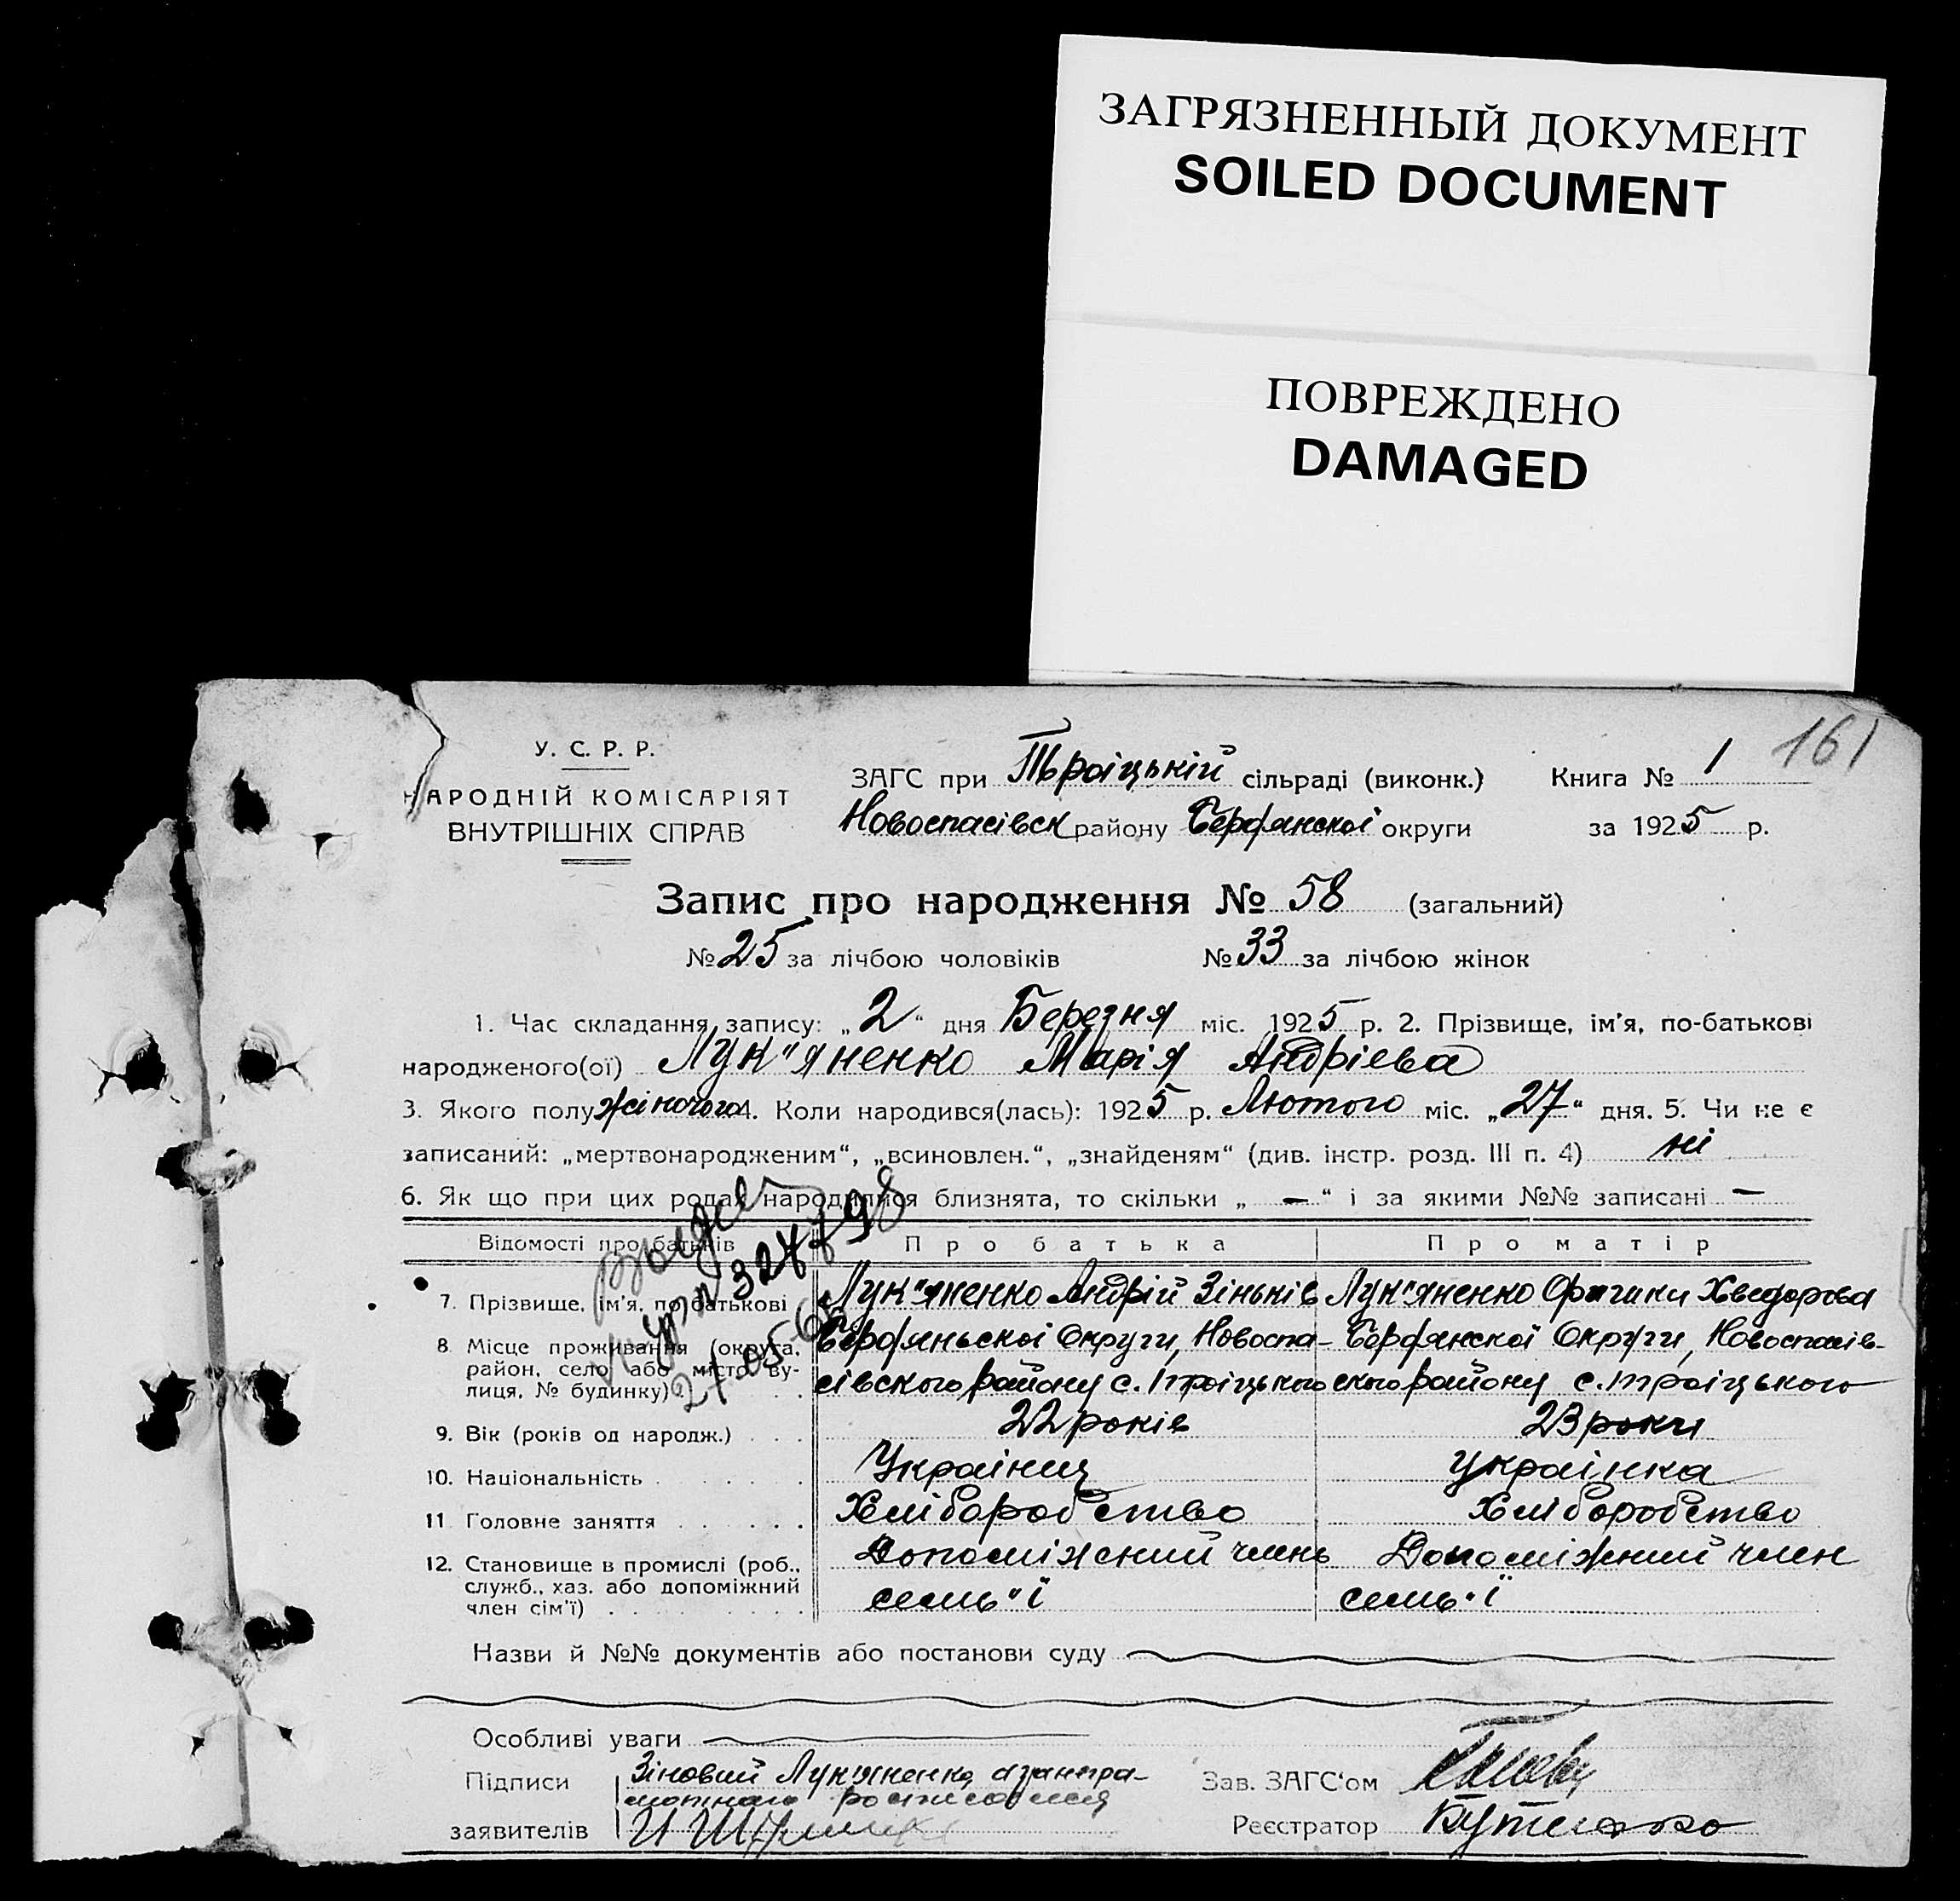 ЗАГРЯЗНЕННЫЙ ДОКУМЕНТ
SOILED DOCUMENT
ПОВРЕЖДЕНО
DAMAGED
161
У. С. Р. Р.
НАРОДНІЙ КОМІСАРІЯТ
ВНУТРІШНІХ СПРАВ
ЗАГС при Тьроіцькій сільраді (виконк.) Книга № 1
Новоспасівск району Бердянскої округи за 1925 р.
Запис про народження № 58 (загальний)
№ 25 за лічбою чоловіків № 33 за лічбою жінок
1. Час складання запису: „2“ дня Березня міс. 1925 р. 2. Прізвище, ім'я, по-батькові
народженого(ої) Лук"яненко Марія Андрієва
3. Якого полу жіночого 4. Коли народився(лась): 1925 р. Лютого міс. „27“ дня. 5. Чи не є
записаний: „мертвонародженим“, „всиновлен.“, „знайденям“ (див. інстр. розд. III п. 4) ні
6. Як що при цих родах народилися близнята, то скільки „ — “ і за якими №№ записані —
Відомості про батьків Про батька Про матір
7. Прізвище, ім'я, по-батькові Лук"яненко Андрій Зіньків Лук"яненко Хведорова
8. Місце проживання (округа, район, село або місто, вулиця, № будинку)
Бердяньскої Округи, Новоспа- Бердянскої Округи, Новоспасів-
сівского району с. Троіцького ского району с. Троіцького
9. Вік (років од народж.) 22 років 23 роки
10. Національність Украінец українка
11. Головне заняття Хліборобство Хліборобство
12. Становище в промислі (роб., служб., хаз. або допоміжний член сім'ї)
Допоміжний член Допоміжний член
семь"ї семь"ї
Назви й №№ документів або постанови суду
Особливі уваги
Підписи Зіновий Лукяненко Зав. ЗАГС'ом
заявителів Реєстратор Бутенко
324798